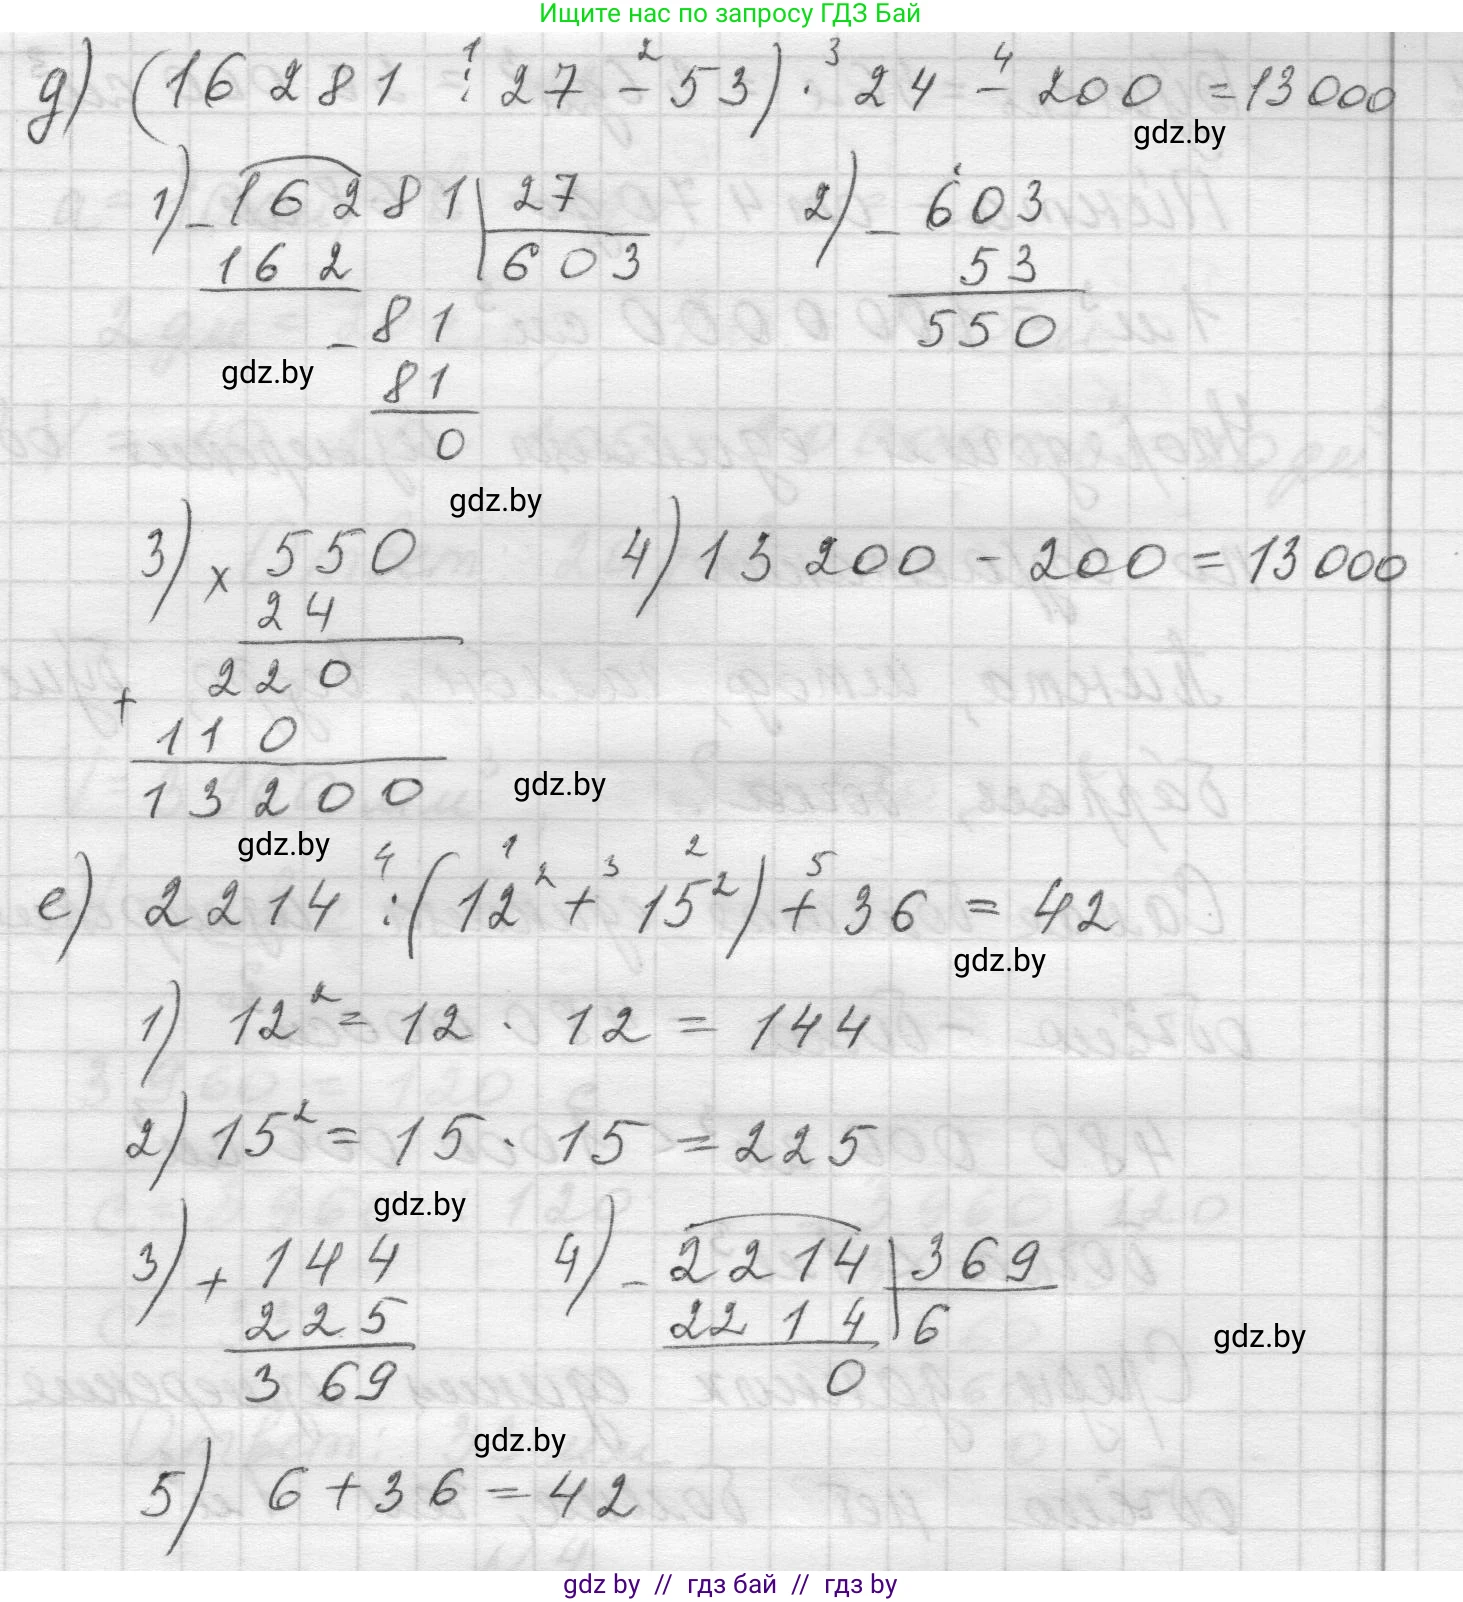 Ищите нас по запросу ГДЗ Бай
д) (16281 : 27 - 53) · 24 - 200 = 13000
1 2 3 4
gdz.by
1) - 16281 | 27
162 603
- 81
81
0
2) - 603
53
550
gdz.by
gdz.by
3) x 550
24
+ 220
110
13200
4) 13200 - 200 = 13000
gdz.by
gdz.by
4 1 3 2 5
е) 2214 : (12² + 15²) + 36 = 42
gdz.by
1) 12² = 12 · 12 = 144
2) 15² = 15 · 15 = 225
gdz.by
3) + 144
225
369
4) - 2214 | 369
2214 6
0
gdz.by
gdz.by
5) 6 + 36 = 42
gdz by // гдз бай // гдз by